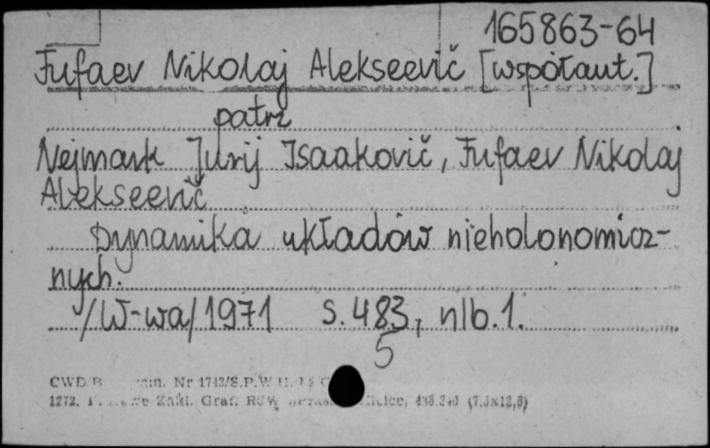 165863-64
Fufaev Nikolaj Alekseevič [współaut.]
patrz
Nejmark Jurij Isaakovič, Fufaev Nikolaj
Alekseevič
Dynamika układów nieholonomicz-
nych.
/W-wa/ 1971 s. 483, nlb. 1.
5
CWD Nr 1743/S.P.W
1272. Zakł. Graf. RSW (7,5x12,5)